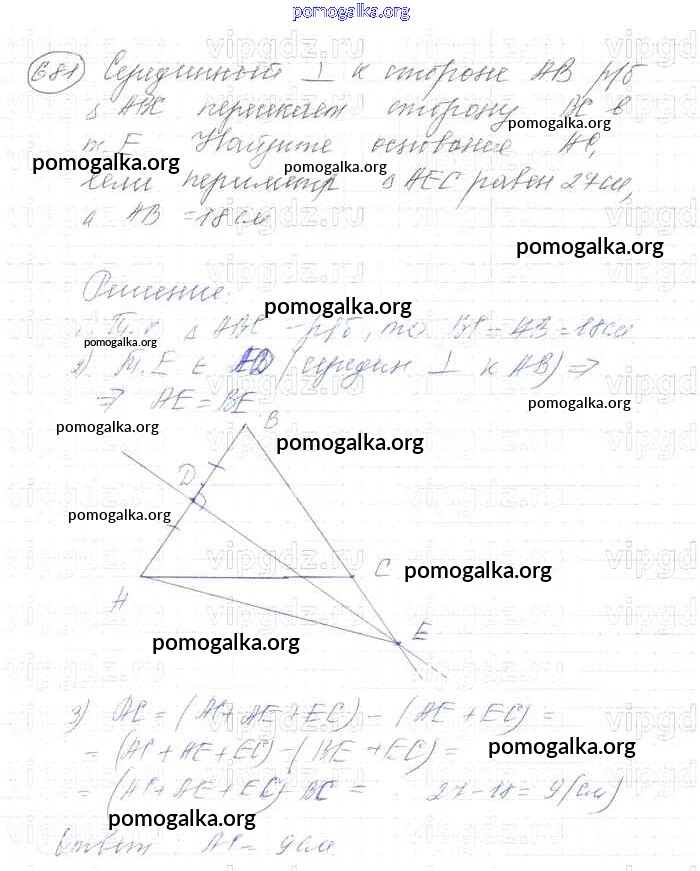 pomogalka.org
681 Серединный ⊥ к стороне AB р/б
Δ ABC пересекает сторону BC в
pomogalka.org
т. E. Найдите основание AC,
pomogalka.org
pomogalka.org
если периметр Δ AEC равен 27 см,
а AB = 18 см
pomogalka.org
Решение:
pomogalka.org
1) Т.к. Δ ABC - р/б, то BC = AB = 18 см.
pomogalka.org
2) Т. E ∈ ED (середин ⊥ к AB) ⇒
⇒ AE = BE.
pomogalka.org
pomogalka.org
B
pomogalka.org
D
pomogalka.org
C
pomogalka.org
A
E
pomogalka.org
3) AC = (AC + AE + EC) - (AE + EC) =
= (AC + AE + EC) - (BE + EC) =
pomogalka.org
= (AC + AE + EC) - BC = 27 - 18 = 9 (см)
pomogalka.org
Ответ: AC = 9 см.
vipgdz.ru